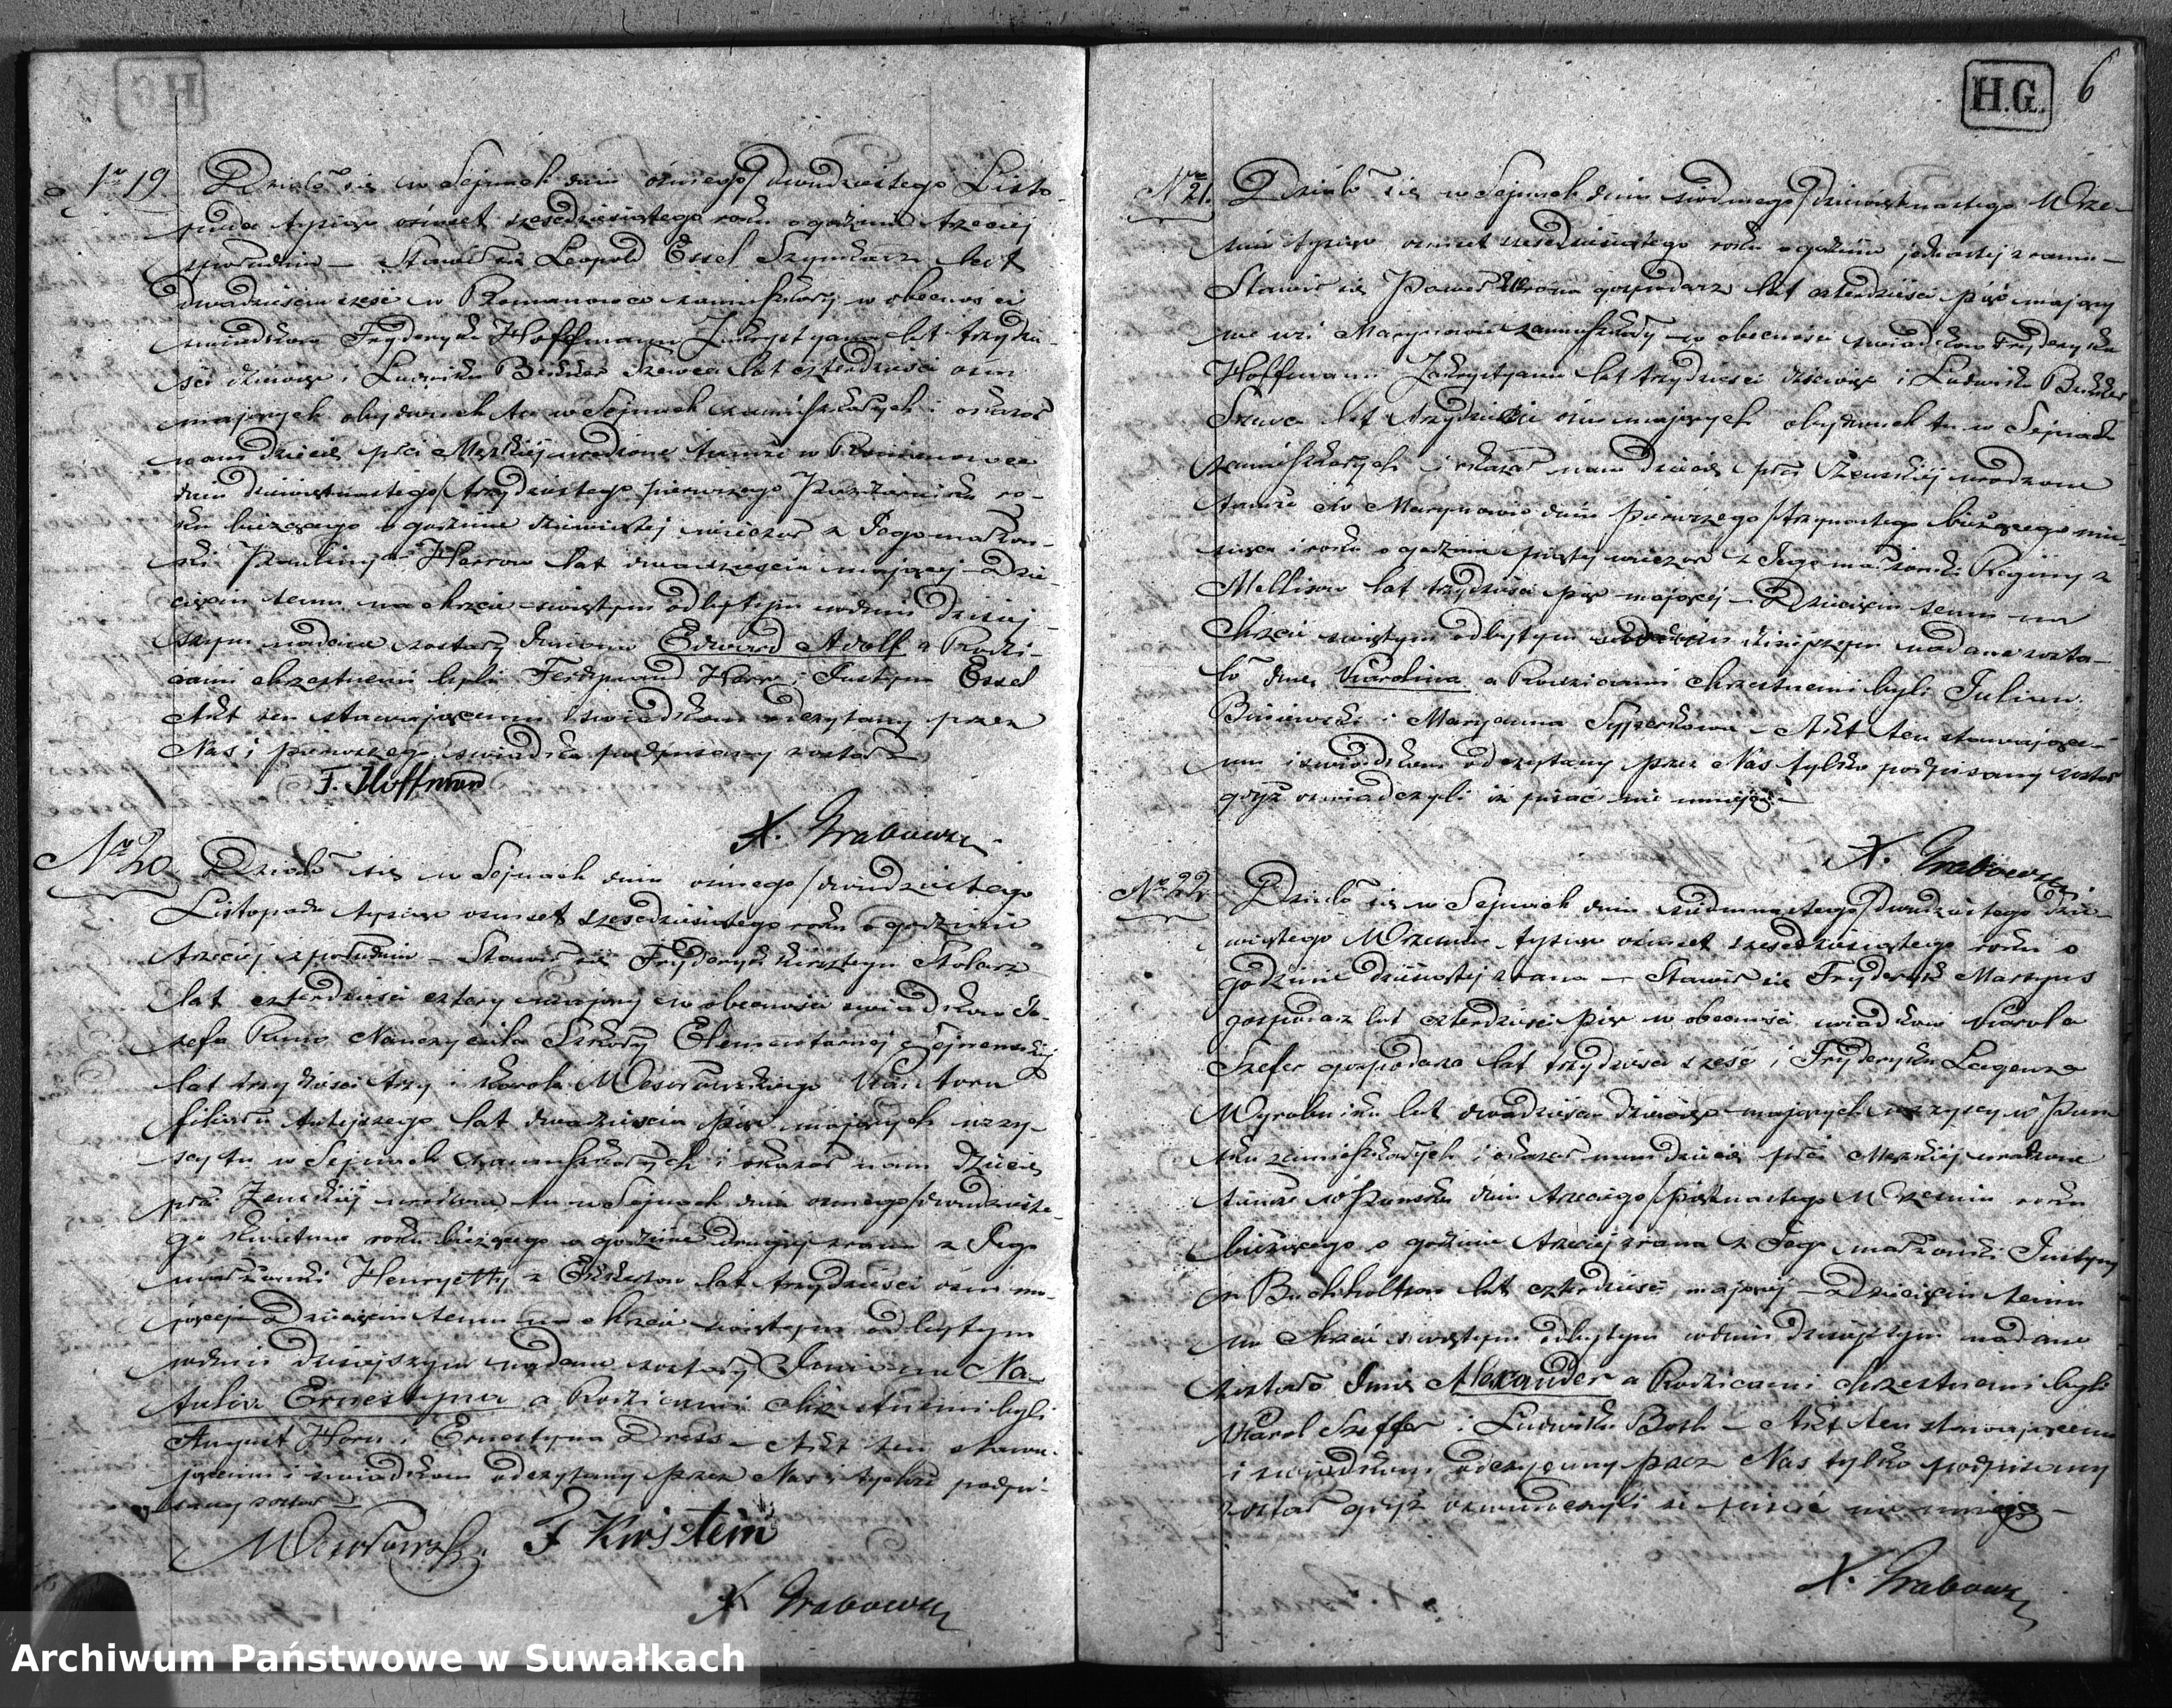 H.G. 6
Nr 19 Działo się w Sejnach dnia ósmego/dwudziestego Listo-
pada tysiąc ośmset sześćdziesiątego roku o godzinie trzeciej
z południa — Stawił się Leopold Essel Szynkarz lat
dwadzieścia sześć w Romanowce zamieszkały w obecności
świadków Fryderyka Hoffmann Zakrystyana lat trzydzie-
ści dziewięć i Ludwika Bekker Szewca lat czterdzieści ośm
mających obydwuch tu w Sejnach zamieszkałych i okazał
nam dziecię płci Męzkiej urodzone tamże w Romanowce
dnia dziewiętnastego/trzydziestego pierwszego Października ro-
ku bieżącego o godzinie dziewiątej wieczór z Jego małżon-
ki Pauliny Horrow lat dwadzieścia mającej — Dzie-
cięciu temu na chrzcie świętym odbytym w dniu dzisiej-
szym nadane zostały Imiona Edward Adolf a Rodzi-
cami chrzestnemi byli Ferdynand Horr i Justyna Essel
Akt ten stawającemu i świadkom odczytany przez
Nas i pierwszego świadka podpisany został —
F. Hoffman
X. Grabowski
Nr 20 Działo się w Sejnach dnia ósmego/dwudziestego
Listopada tysiąc ośmset sześćdziesiątego roku o godzinie
trzeciej z południa — Stawił się Fryderyk Kirsztejn Stolarz
lat czterdzieści cztery mający w obecności świadków Jó-
zefa Nauczyciela Szkoły Elementarnej Sejneńskiej
lat trzydzieści trzy i Karola Wesołowskiego Kantora
filiału tutejszego lat dwadzieścia pięć mających wszy-
scy tu w Sejnach zamieszkałych i okazał nam dziecię
płci Żeńskiej urodzone tu w Sejnach dnia ósmego/dwudzieste-
go Kwietnia roku bieżącego o godzinie drugiej z rana z Jego
małżonki Henryetty z lat trzydzieści ośm ma-
jącej — Dziecięciu temu na chrzcie świętym odbytym
w dniu dzisiejszym nadane zostały Imiona Na-
talia Ernestyna a Rodzicami chrzestnemi byli
August Horn i Ernestyna Dress — Akt ten stawa-
jącemu i świadkom odczytany przez Nas i tychże podpi-
sany został —
Wesołowski F Kirstein
X Grabowski
Nr 21. Działo się w Sejnach dnia siódmego/dziewiętnastego Wrze-
śnia tysiąc ośmset sześćdziesiątego roku o godzinie jedenastej z rana —
Stawił się Paweł Wrona gospodarz lat czterdzieści pięć mający
we wsi Marynowie zamieszkały — w obecności świadków Fryderyka
Hoffmann Zakrystyana lat trzydzieści dziewięć i Ludwika Bekker
Szewca lat trzydzieści ośm mających obydwuch tu w Sejnach
zamieszkałych i okazał nam dziecię płci Żeńskiej urodzone
tamże w Marynowie dnia pierwszego/trzynastego bieżącego mie-
siąca i roku o godzinie piątej wieczór z Jego małżonki Reginy z
Mellisow lat trzydzieści pięć mającej — Dziecięciu temu na
Chrzcie świętym odbytym w dniu dzisiejszym nadane zosta-
ło Imię Karolina a Rodzicami chrzestnemi byli Julian
i Maryanna — Akt ten stawające-
mu i świadkom odczytany przez Nas tylko podpisany został
gdyż oświadczyli iż pisać nie umieją —
X. Grabowski
Nr 22. Działo się w Sejnach dnia siedmnastego/dwudziestego dzie-
wiątego Września tysiąc ośmset sześćdziesiątego roku o
godzinie dziesiątej z rana — Stawił się Fryderyk Martyns
gospodarz lat czterdzieści pięć w obecności świadków Karola
Szefer gospodarza lat trzydzieści sześć i Fryderyka
Wyrobnika lat dwadzieścia dziewięć mających wszyscy w Puń-
sku zamieszkałych i okazał nam dziecię płci Męzkiej urodzone
tamże w Puńsku dnia trzeciego/piętnastego Września roku
bieżącego o godzinie trzeciej z rana z Jego małżonki Justyny
z Buchholtzow lat czterdzieści mającej — Dziecięciu temu
na Chrzcie świętym odbytym w dniu dzisiejszym nadane
zostało Imię Alexander a Rodzicami chrzestnemi byli
Karol Szeffer i Ludwika Both — Akt ten stawającemu
i świadkom odczytany przez Nas tylko podpisany
został gdyż oświadczyli iż pisać nie umieją —
X. Grabowski
Archiwum Państwowe w Suwałkach